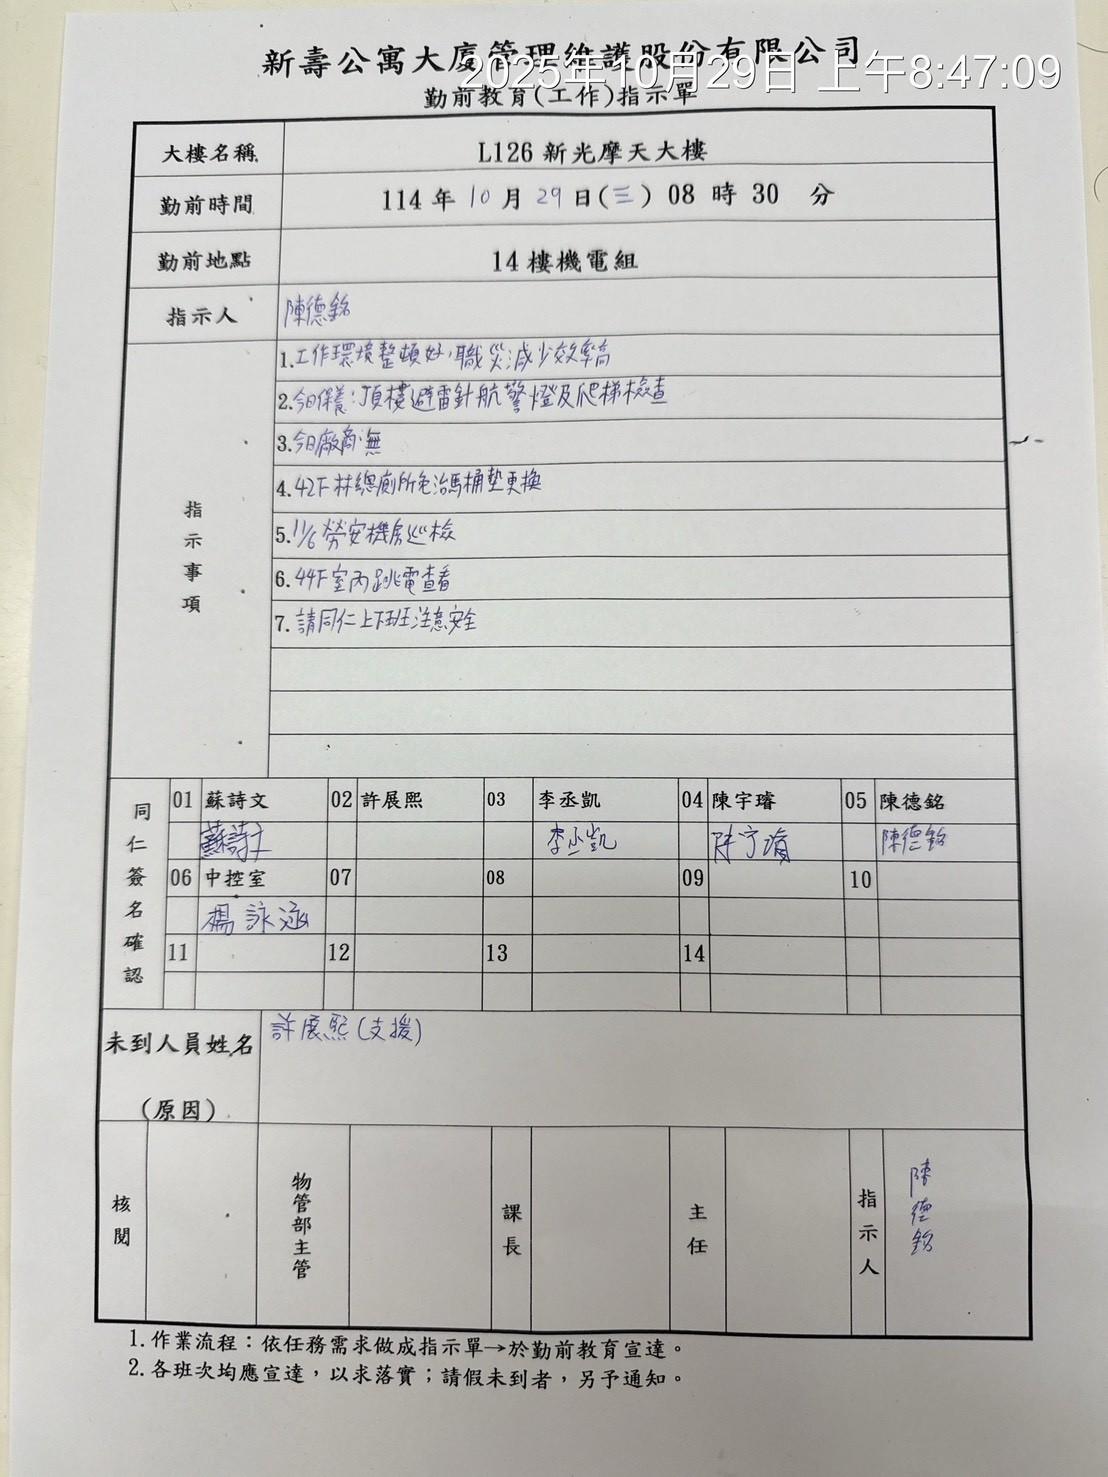 新壽公寓大廈管理維護股份有限公司
2025年10月29日 上午8:47:09
勤前教育(工作)指示單
大樓名稱 L126 新光摩天大樓
勤前時間 114 年 10 月 29 日(三) 08 時 30 分
勤前地點 14 樓機電組
指示人 陳德銘
指示事項
1.工作環境整頓好,職災減少效率高
2.今日保養:頂樓避雷針航警燈及爬梯檢查
3.今日廠商:無
4.42F林總廁所免治馬桶墊更換
5.11/6勞安機房巡檢
6.44F室內跳電查看
7.請同仁上下班注意安全
同仁簽名確認
01 蘇詩文 02 許展熙 03 李丞凱 04 陳宇璿 05 陳德銘
蘇詩文 李丞凱 陳宇璿 陳德銘
06 中控室 07 08 09 10
楊詠涵
11 12 13 14
未到人員姓名 許展熙(支援)
(原因)
核閱 物管部主管 課長 主任 指示人 陳德銘
1.作業流程：依任務需求做成指示單→於勤前教育宣達。
2.各班次均應宣達，以求落實；請假未到者，另予通知。